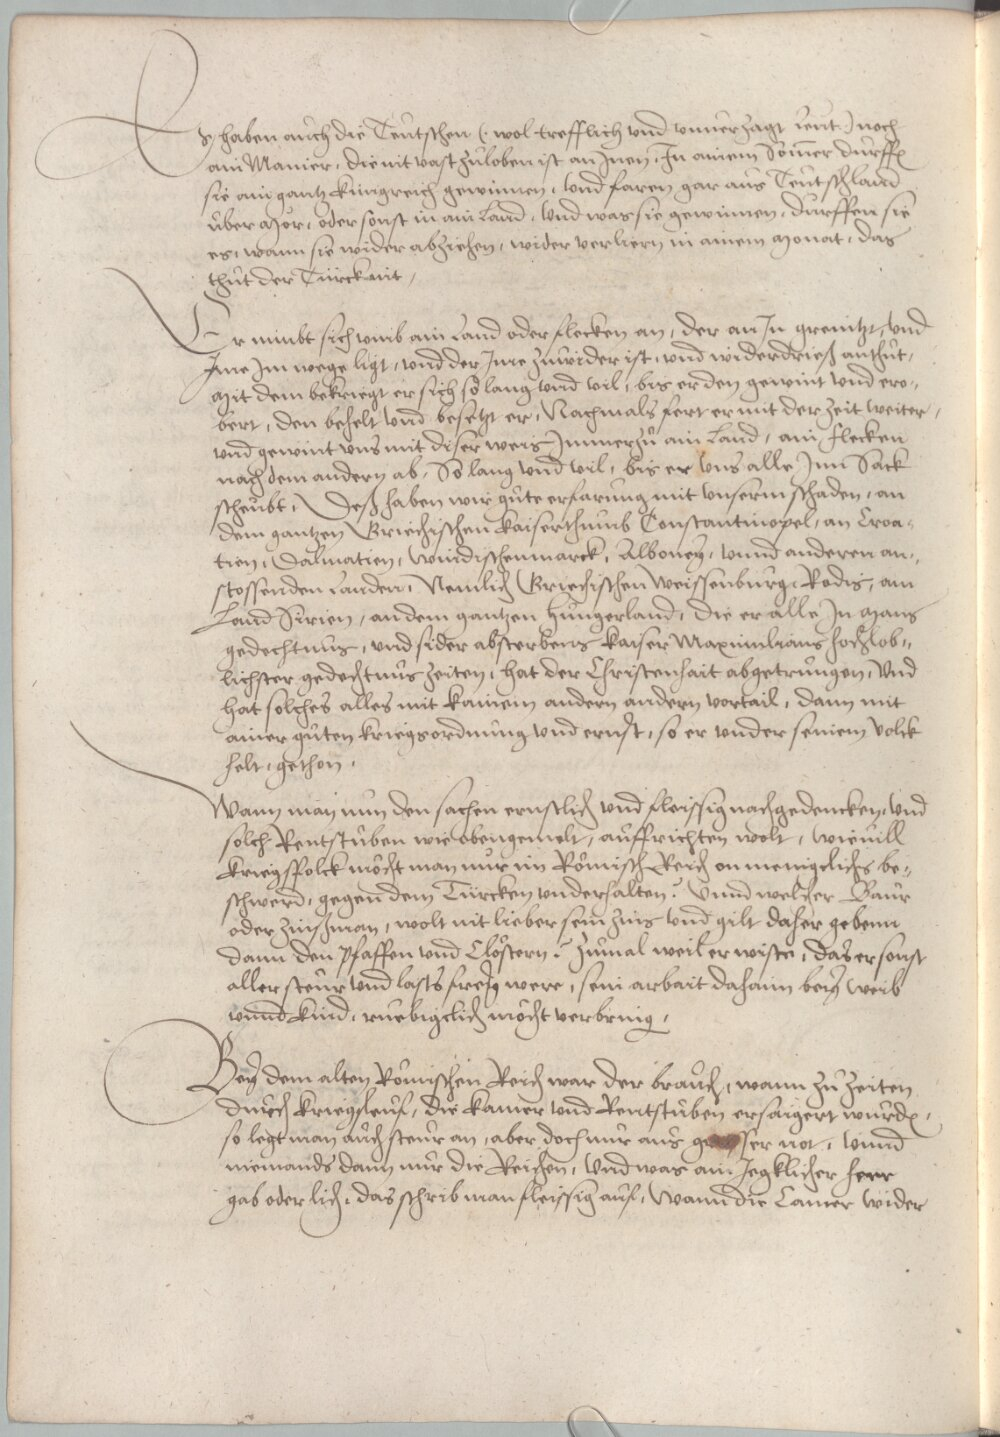 Es haben auch die Teutschen (: wol trefflich und unuerzagt leut:) noch
ain Manier, die nit vast zuloben ist an Inen, In ainem Sommer durffen
sie ain gantz Küngreich gewinnen, Und faren gar aus Teutschland
über Mör, oder sonst in ain Land, Und was sie gewinnen, durffen sie
es, wann sie wider abziehen, wider verliern in ainem Monat, das
thut der Türck nit,
Er nimbt sich umb ain Land oder flecken an, der an In grenitzt, und
Ime Im wege ligt, und der Ime zuwider ist, und widerdrieß anthut,
Mit dem bekriegt er sich so lang und vil, bis er den gewint und ero-,
bert, den behelt und besetzt er, Nachmals fert er mit der zeit weiter,
und gewint uns mit diser weis Immerzu ain Land, ain flecken
nach dem andern ab, So lang und vil, bis er uns alle Inn Sack
scheubt, Deß haben wir gute erfarung mit unserm schaden, an
dem gantzen Griechischen Kaiserthumb Constantinopel, an Croa-,
tien, Dalmatien, Windischenmarck, Alboney, unnd anderen an-,
stossenden Landen, Nemlich Griechischen Weissenburg, Rodis, am
Land Sirien, an dem gantzen Hungerland, die er alle In Mans
gedechtnus, und sider absterbens Kaiser Maximilians hochlob-,
lichster gedechtnus zeiten, hat der Christenhait abgetrungen, Und
hat solches alles mit kainem andern andern vortail, dann mit
ainer guten kriegsordnung und ernst, so er under seinem Volck
helt, gethon,
Wann man nun den sachen ernstlich und fleissig nachgedencken, und
solch Rentstuben wie obengemelt, auffrichten wolt, wieuill
Kriegsfolck möcht man nur im Römisch Reich on menigclichs be-,
schwerd, gegen dem Türcken underhalten? Unnd welcher Baur
oder Zinßman, wolt nit lieber sein zins und gilt daher gebenn
dann den Pfaffen und Clöstern? zumal weil er wiste, das er sonst
aller steur und lasts frey were, sein arbait dahaim bey weib
unnd kind, ruebigclich möcht verbring,
Bey dem alten Römischen Reich war der brauch, wann zu zeiten
durch kriegsleuf, die kamer und Rentstuben ersaigert wurden,
so legt man auch steur an, aber doch nur aus grosser not, unnd
niemands dann nur die Reichen, Und was ain Jegklicher herr
gab oder lich, das schrib man fleissig auf, Wann die Camer wider